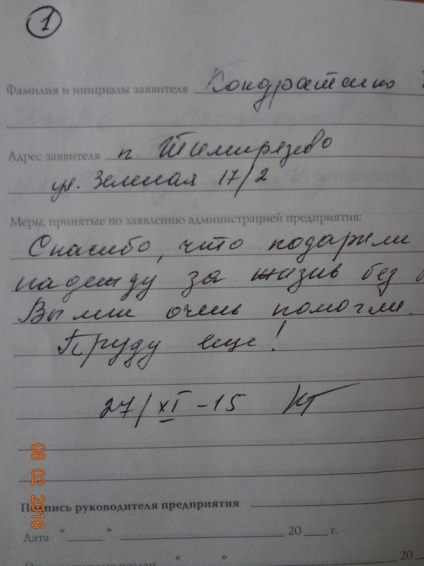 1
Фамилия и инициалы заявителя Кондратенко
Адрес заявителя п. Тимирязево
ул. Зеленая 17/2
Меры, принятые по заявлению администрацией предприятия:
Спасибо, что подарили
надежду за жизнь без
Вы мне очень помогли.
Приду еще!
27/XI-15 КТ
Подпись руководителя предприятия
Дата “ ” 20 г.
08 02 2016